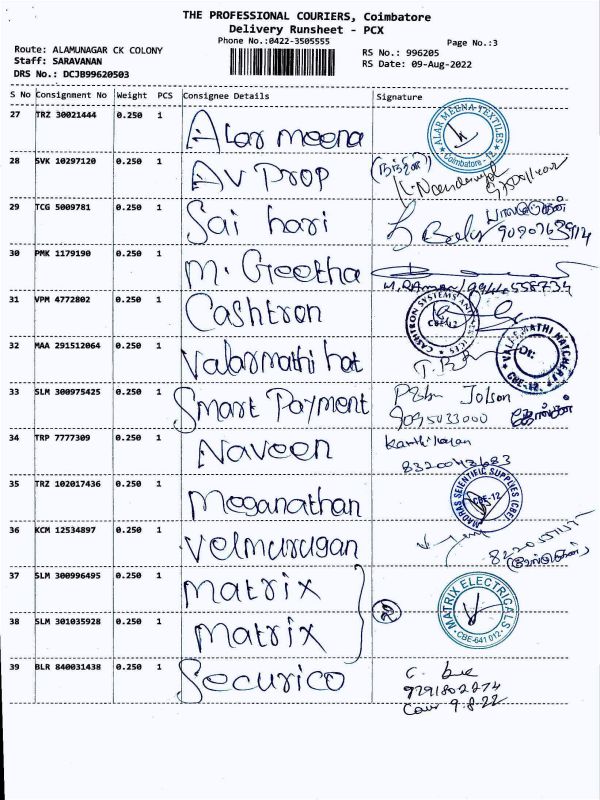 THE PROFESSIONAL COURIERS, Coimbatore
Delivery Runsheet - PCX
Phone No.:0422-3505555
Page No.:3
Route: ALAMUNAGAR CK COLONY
RS No.: 996205
Staff: SARAVANAN
RS Date: 09-Aug-2022
DRS No.: DCJB99620503
S No Consignment No Weight PCS Consignee Details Signature
27 TRZ 30021444 0.250 1 Alar meena
ALAR MEENA TEXTILES
Coimbatore - 12
28 SVK 10297120 0.250 1 AV Prop
29 TCG 5009781 0.250 1 Sai hari
30 PMK 1179190 0.250 1 M. Geetha
31 VPM 4772802 0.250 1 Cashtron
CBE-12
32 MAA 291512064 0.250 1 Valarmathi hat
33 SLM 300975425 0.250 1 Smart Payment
9095033000
34 TRP 7777309 0.250 1 Naveen
35 TRZ 102017436 0.250 1 Meganathan
MADRAS SCIENTIFIC SUPPLIES (CBE)
CBE-12
36 KCM 12534897 0.250 1 Velmurugan
37 SLM 300996495 0.250 1 Matrix
MATRIX ELECTRICALS
CBE-641 012
38 SLM 301035928 0.250 1 Matrix
39 BLR 840031438 0.250 1 Securico
9791802274
9-8-22